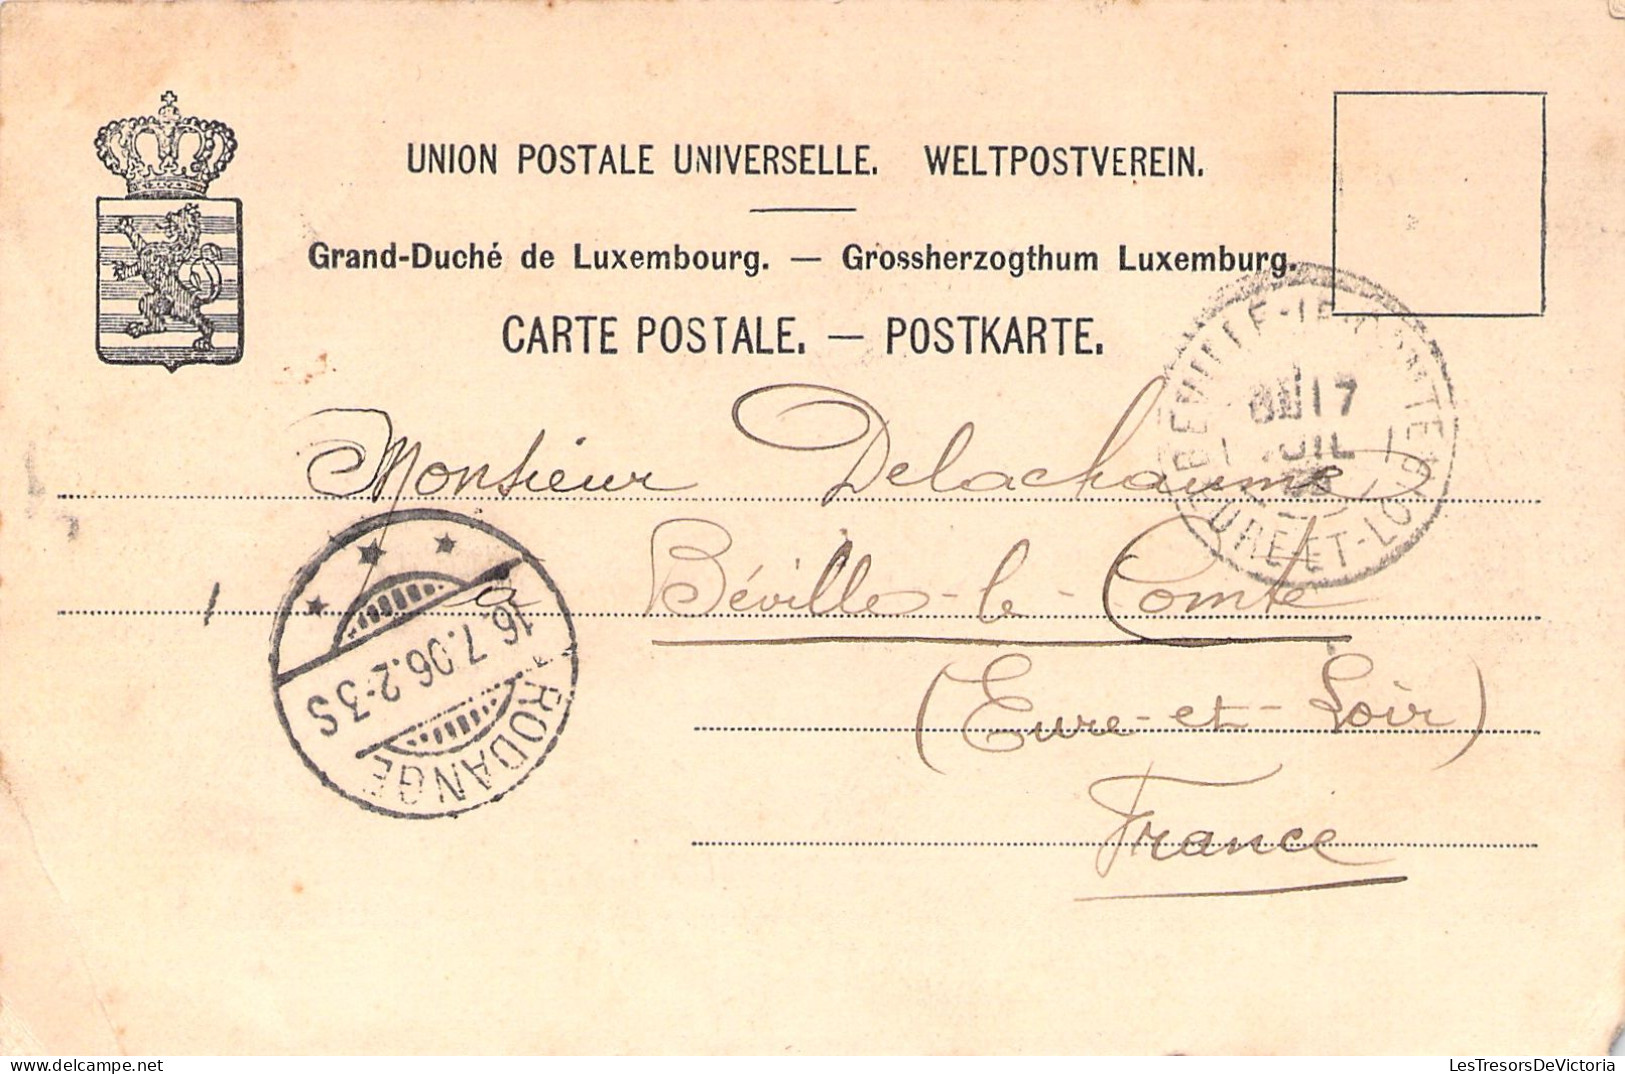 UNION POSTALE UNIVERSELLE. WELTPOSTVEREIN.
Grand-Duché de Luxembourg. — Grossherzogthum Luxemburg.
CARTE POSTALE. — POSTKARTE.
BEVILLE-LE-COMTE
17
JUIL
EURE-ET-LOIR
Monsieur Delachaume
à Béville-le-Comte
(Eure-et-Loir)
France
16.7.06.2-3S
RODANGE
LesTresorsDeVictoria